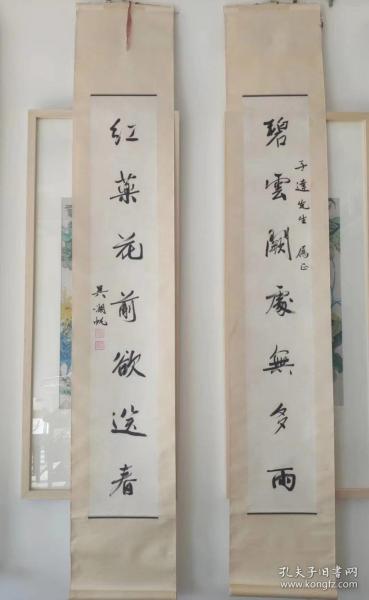 碧雲闕處無多雨
子達先生 屬正
紅藥花前欲送春
吴湖帆
孔夫子旧书网
www.kongfz.com